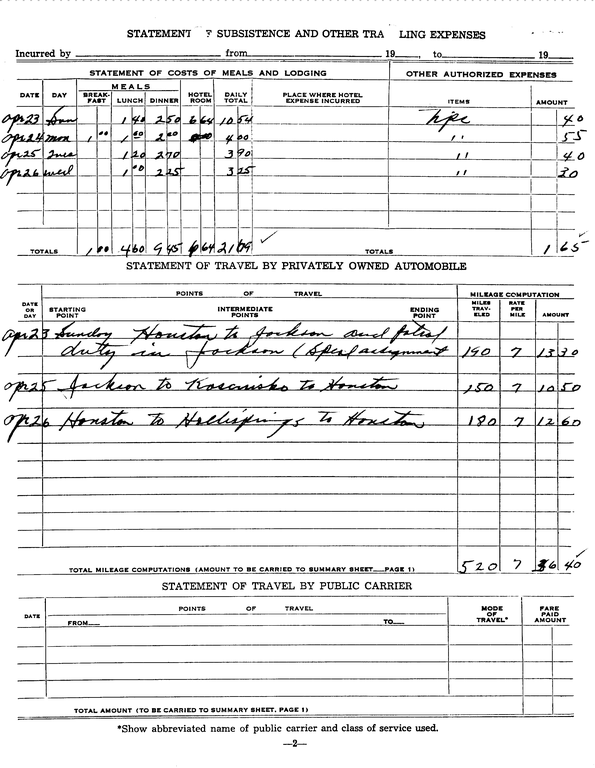 STATEMENT SUBSISTENCE AND OTHER TRA LING EXPENSES
Incurred by from 19 , to 19
STATEMENT OF COSTS OF MEALS AND LODGING OTHER AUTHORIZED EXPENSES
DATE DAY MEALS HOTEL ROOM DAILY TOTAL PLACE WHERE HOTEL EXPENSE INCURRED ITEMS AMOUNT
BREAK-FAST LUNCH DINNER
Apr 23 Sun 1 40 2 50 6 64 10 54 tips 40
Apr 24 mon 1 00 1 00 2 00 4 00 " 55
Apr 25 Tues 1 20 2 70 3 90 " 40
Apr 26 wed 1 00 2 25 3 25 " 30
TOTALS 1 00 4 60 9 45 6 64 21 69 TOTALS 1 65
STATEMENT OF TRAVEL BY PRIVATELY OWNED AUTOMOBILE
DATE OR DAY POINTS OF TRAVEL MILEAGE COMPUTATION
STARTING POINT INTERMEDIATE POINTS ENDING POINT MILES TRAV-ELED RATE PER MILE AMOUNT
Apr 23 Sunday Houston to Jackson and Patrol
duty in Jackson (Special assignment 190 7 13 30
Apr 25 Jackson to Kosciusko to Houston 150 7 10 50
Apr 26 Houston to Hollisprings to Houston 180 7 12 60
TOTAL MILEAGE COMPUTATIONS (AMOUNT TO BE CARRIED TO SUMMARY SHEET PAGE 1) 520 7 36 40
STATEMENT OF TRAVEL BY PUBLIC CARRIER
DATE POINTS OF TRAVEL MODE OF TRAVEL* FARE PAID AMOUNT
FROM TO
TOTAL AMOUNT (TO BE CARRIED TO SUMMARY SHEET, PAGE 1)
*Show abbreviated name of public carrier and class of service used.
—2—